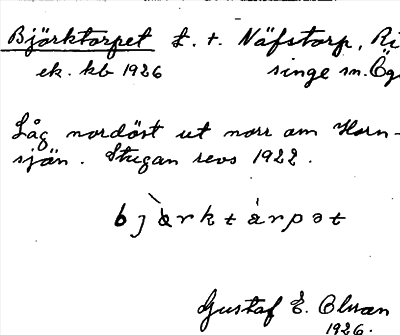 Björktorpet t. t. Näfstorp, Ri
ek. kb 1926 singe sn. Ög
Låg nordöst ut norr om Horn-
sjön. Stugan revs 1922.
bjòrktárpət
Gustaf E. Olsson
1926.